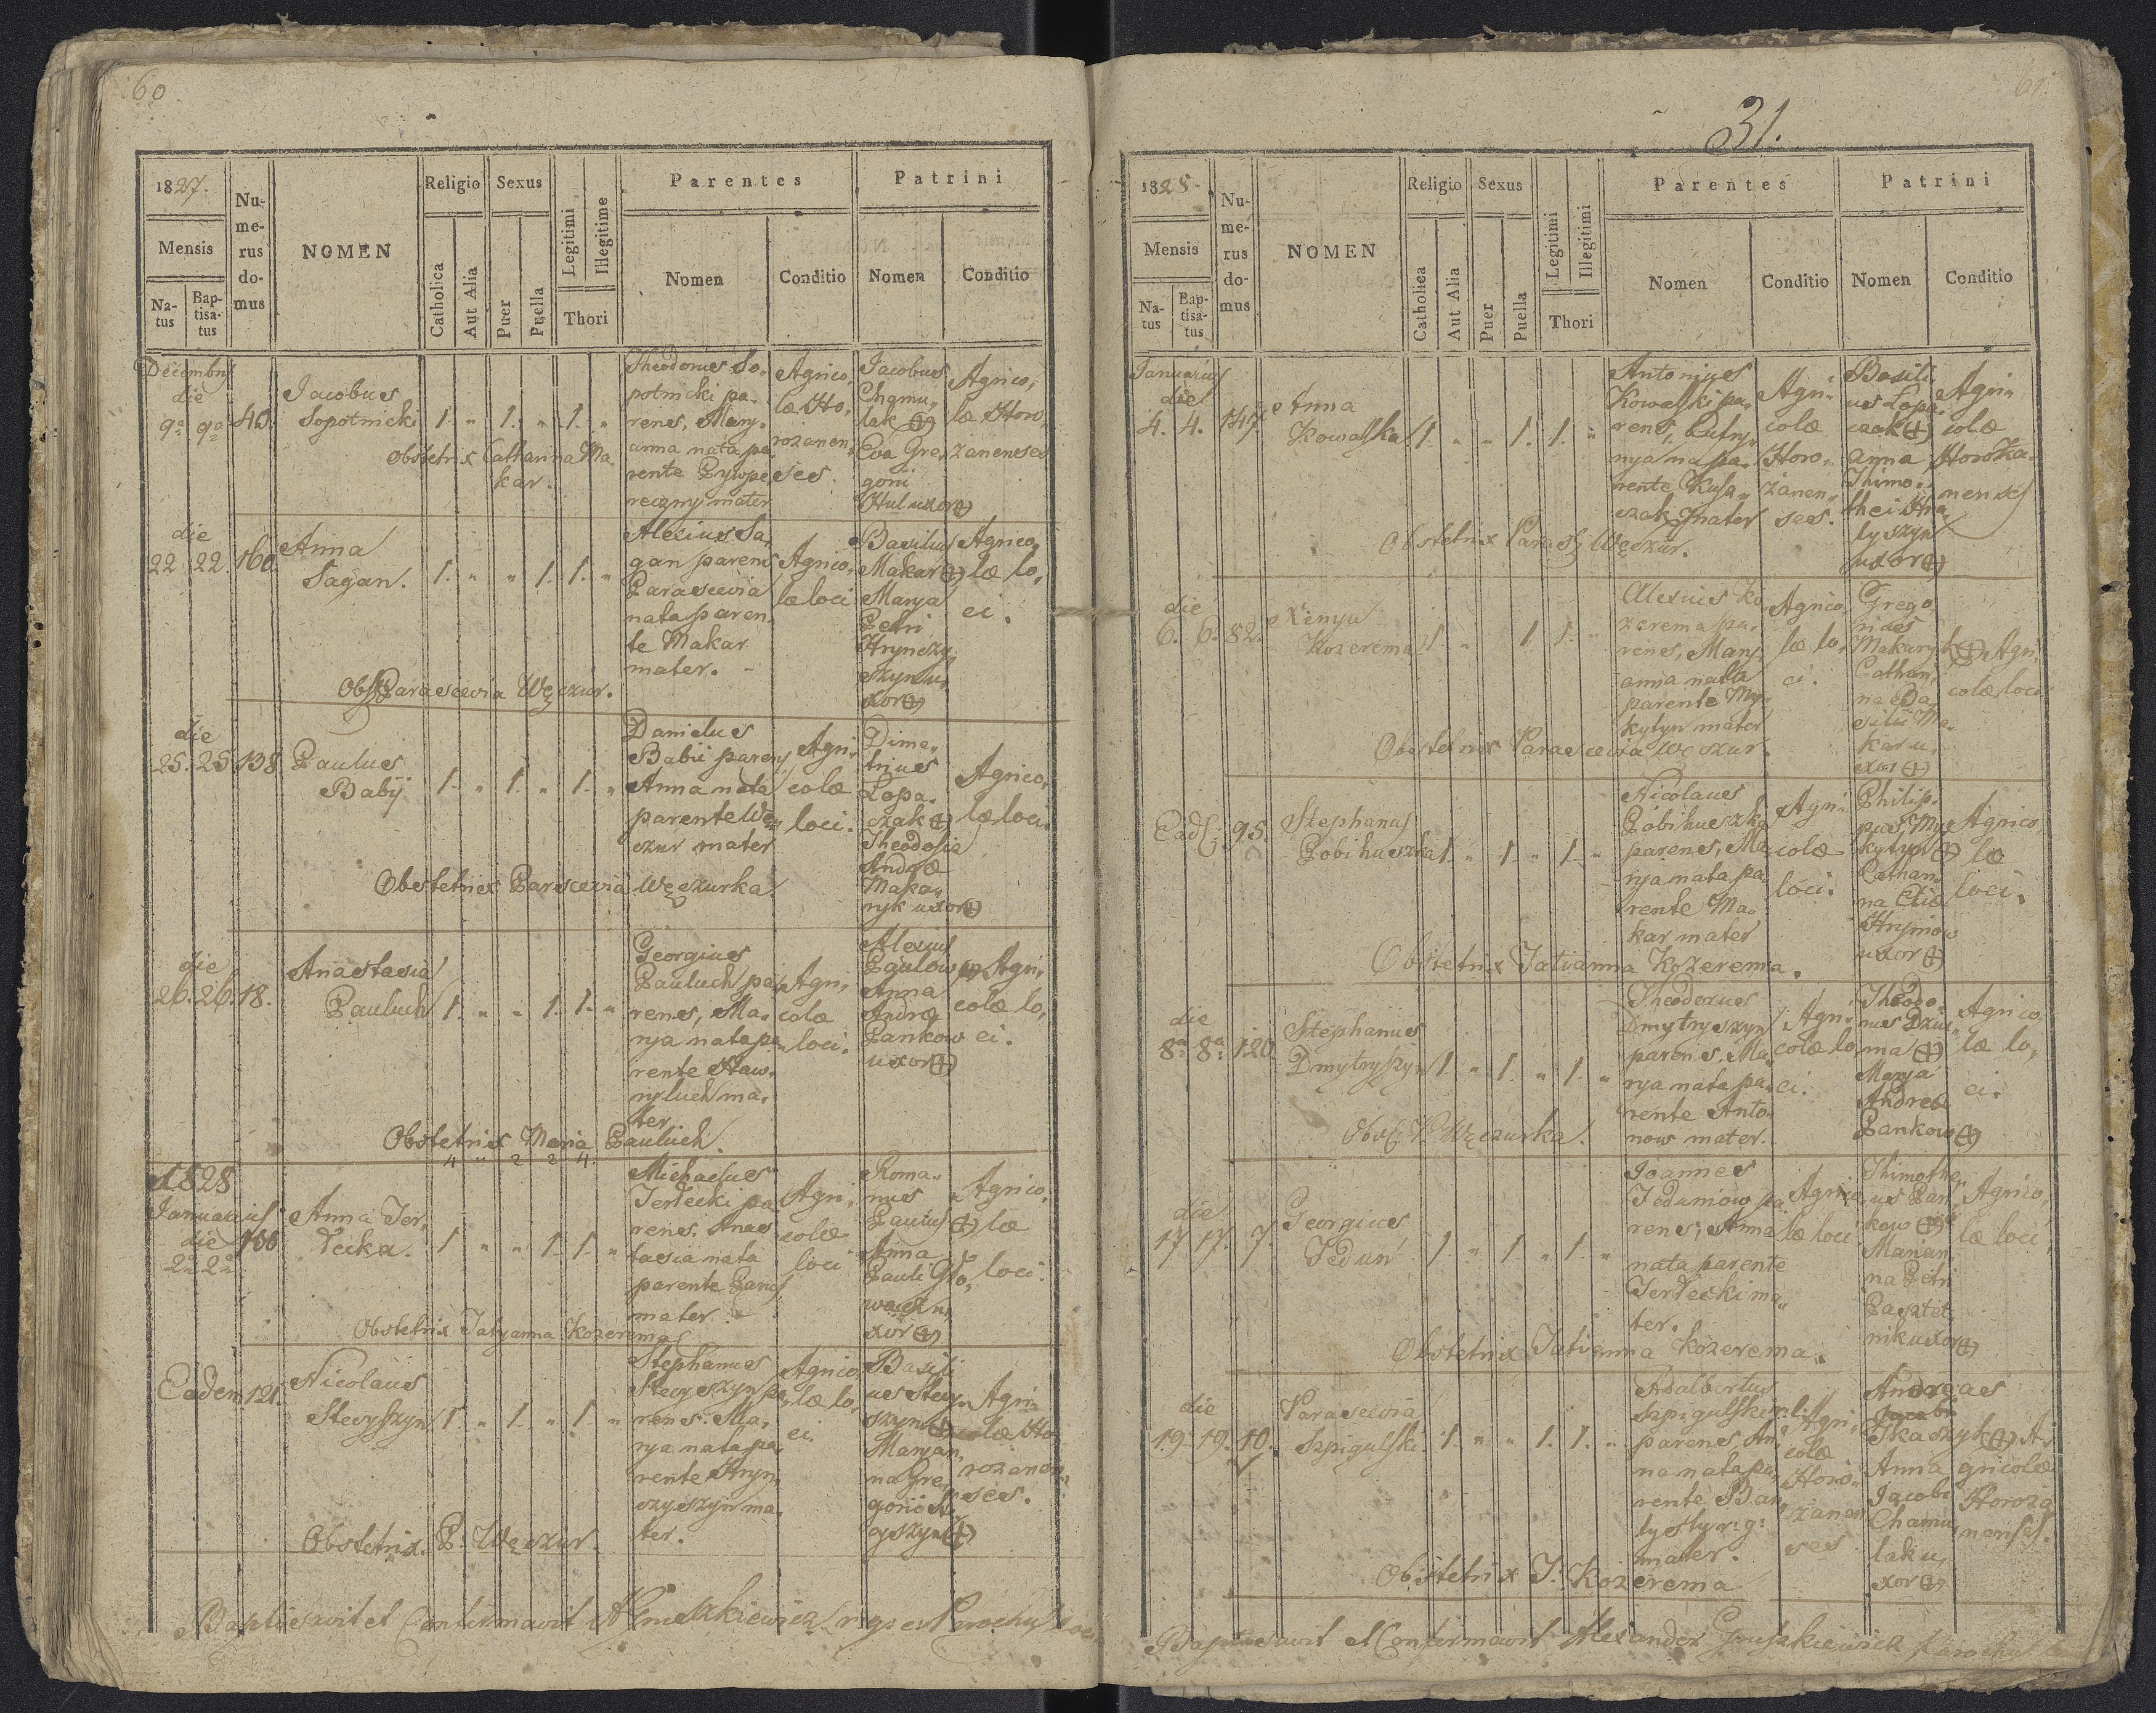 60
1827.
Mensis
Na-
tus
Bap-
tisa-
tus
Nu-
me-
rus
do-
mus
NOMEN
Religio
Catholica
Aut Alia
Sexus
Puer
Puella
Legitimi
Illegitime
Thori
Parentes
Nomen
Conditio
Patrini
Nomen
Conditio
Decembris
die
9a 9a 40.
Jacobus
Sopotnicki
1. " 1. " 1. "
Theodorus So,
potnicki pa,
rens, Mary,
anna nata pa,
rente
mater
Agrico,
læ Ho,
rozanen,
ses.
Jacobus
Chamu,
lak (+)
Eva Gre,
gorii
Hul uxor (+)
Agrico,
læ Horo,
zanenses
Obstetrix Catharina Ma,
kar.
die
22 22. 160.
Anna
Sagan.
1. " " 1. 1. "
Alexius Sa,
gan parens
Parascevia
nata paren,
te Makar
mater. -
Agrico,
læ loci
Basilius
Makar (+)
Marya
Petri
Hrynczy,
szyn u,
xor (+)
Agrico,
læ lo,
ci.
Obst. Parascevia Węczur.
die
25. 25 138
Paulus
Babij
1. " 1. " 1. "
Danielus
Babii parens
Anna nata
parente Wę,
czur mater
Agri,
colæ
loci.
Dime,
trius
Lopa,
czak (+)
Theodosia
Andræ
Maka,
ryk uxor (+)
Agrico,
læ loci.
Obstetrix Parascevia Węczurka
die
26. 26. 18.
Anastasia
Pauluch
1. " " 1. 1. "
Georgius
Pauluch pa,
rens, Ma,
rya nata pa,
rente Haw,
ryluch ma,
ter
Agri,
colæ
loci.
Alexius
Paulow (+)
Anna
Andræ
Pankow
uxor (+)
Agri,
colæ lo,
ci.
Obstetrix Maria Pauluch.
4 " 2 2 4.
1828
Januarius
die
2a 2a
Anna Jer,
łecka.
1 " " 1. 1. "
Michaelus
Jerłecki pa,
rens. Anas
tasia nata
parente
mater.
Agri,
colæ
loci
Roma,
nus
(+)
Anna
Pauli Gło,
u,
xor (+)
Agrico,
læ
loci.
Obstetrix Tatyanna Kozerema
Eadem 121.
Nicolaus
Stecyszyn
1. " 1. " 1. "
Stephanus
Stecyszyn pa,
rens. Ma,
rya nata pa,
rente Hryn,
czyszyn ma,
ter.
Agrico,
læ lo,
ci.
Basili
us Stecy,
szyn (+)
Marian,
na Gre,
gorii
(+)
Agri,
colæ Ho
rozanen,
ses.
Obstetrix. P. Węczur.
Baptisavit et Confirmavit
61.
31.
1828.
Mensis
Na-
tus
Bap-
tisa-
tus
Nu-
me-
rus
do-
mus
NOMEN
Religio
Catholica
Aut Alia
Sexus
Puer
Puella
Legitimi
Illegitimi
Thori
Parentes
Nomen
Conditio
Patrini
Nomen
Conditio
Januarius
die
4. 4. 147.
Anna
Kowalska
1. " " 1. 1. "
Antonius
Kowalski pa,
rens,
nya na pa,
rente
mater
Agri,
colæ
Horo,
zanen,
ses.
Basili,
us Lopa,
czak (+)
Anna
Thimo,
thei Hra,
lyszyn
uxor (+)
Agri,
colæ
Horoża,
nenses
Obstetrix Paras. Węczur.
die
6. 6. 82.
Xenya
Kozerema
1. " 1 1. "
Alexius Ko
zerema pa,
rens, Mary,
anna nata
parente My,
kytyn mater
Agrico,
læ lo,
ci.
Grego,
rius
Makaryk (+)
Cathari,
na Ba,
silii Ma,
kar u,
xor (+)
Agri,
colæ loci
Obstetrix Parascevia Węczur.
Ead. 95.
Stephanus
Pobihuszka
1. " 1. " 1. "
Nicolaus
Pobihuszka
parens, Ma,
rya nata pa,
rente Ma,
kar mater
Agri,
colæ
loci.
Philip,
pus, My,
kytyn (+)
Cathari,
na Eliæ
Hrymow
uxor (+)
Agrico,
læ
loci.
Obstetrix Tatianna Kozerema.
die
8a 8a 120.
Stephanus
Dmytryszyn
1. " 1. " 1. "
Theodorus
Dmytryszyn
parens. Ma,
rya nata pa,
rente Anto,
now mater.
Agri,
colæ lo,
ci.
Theodo,
rus Dziu,
ma (+)
Marya
Andreæ
Pankow (+)
Agrico,
læ lo,
ci.
Obst. P. Węczurka.
die
17. 17. 7.
Georgius
Fedun
1. " 1. " 1. "
Joannes
Feduniow pa,
rens, Anna
nata parente
Jerłecki ma,
ter.
Agrico,
læ loci
Thimothe,
us Pan,
kow (+)
Marian,
na Petri
Pasztet,
nik uxor (+)
Agrico,
læ loci.
Obstetrix Tatianna Kozerema.
die
19. 19. 10.
Parascevia
Szpigulski
1. " " 1. 1. "
Adalbertus
Szpigulski r: l:
parens, An,
na nata pa,
rente
r: g:
mater.
Agri,
colæ
Horo,
zanen
ses
Andreas
Tkaszyk (+)
Anna
Jacobi
Chamu,
lak u,
xor (+)
A,
gricolæ
Horoza
nenses.
Obstetrix T. Kozerema
Baptisavit et Confirmavit Alexander Gruszkiewicz Parochus